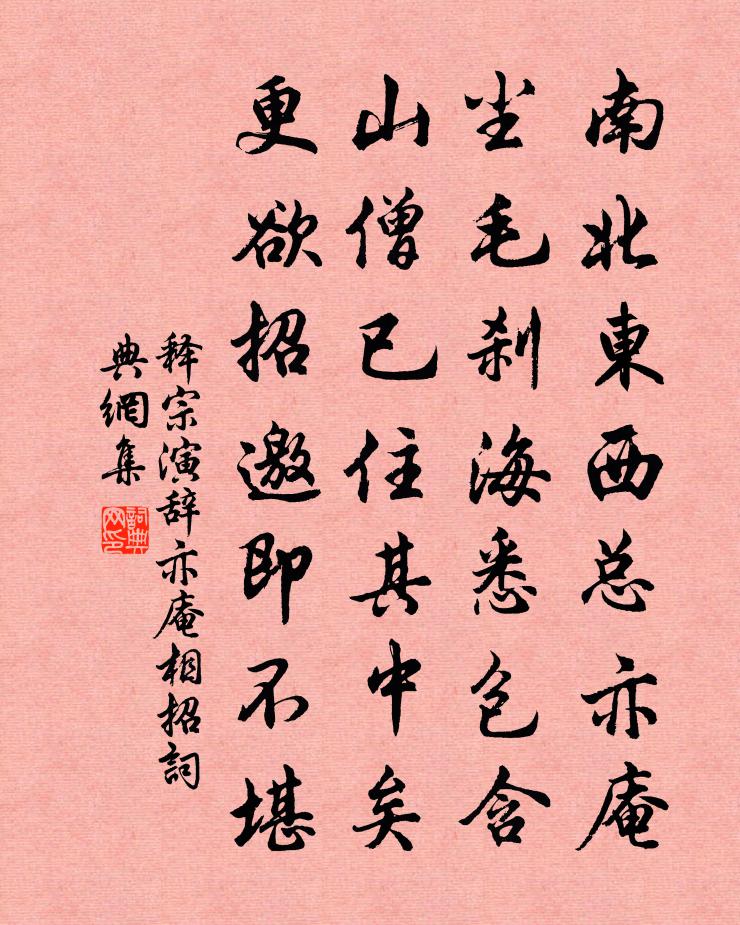 南北東西总亦庵
尘毛刹海悉包含
山僧已住其中矣
更欲招邀即不堪
释宗演辞亦庵相招詞
典網集
詞典
网印